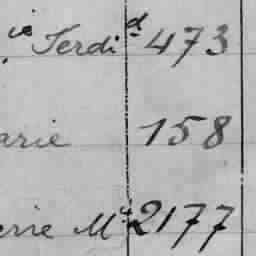 ie Ferdi d 473
arie 158
erie Mie 2177